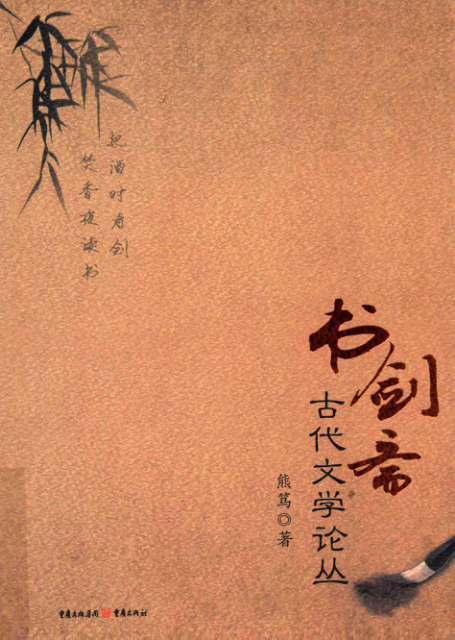 把酒时看剑
焚香夜读书
书剑斋
古代文学论丛
熊笃◎著
重庆出版集团 重庆出版社